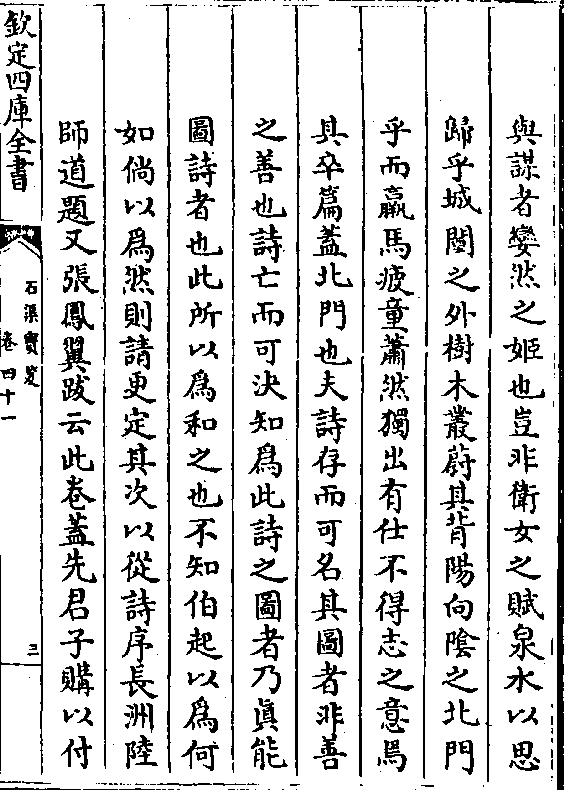 與謀者孌然之姬也豈非衛女之賦泉水以思
歸乎城闉之外樹木叢蔚其背陽向陰之北門
乎而羸馬疲童蕭然獨出有仕不得志之意焉
其卒篇蓋北門也夫詩存而可名其圖者非善
之善也詩亡而可決知為此詩之圖者乃真能
圖詩者也此所以為和之也不知伯起以為何
如倘以為然則請更定其次以從詩序長洲陸
師道題又張鳳翼跋云此卷蓋先君子購以付
欽定四庫全書
石渠寶笈
卷四十一
三